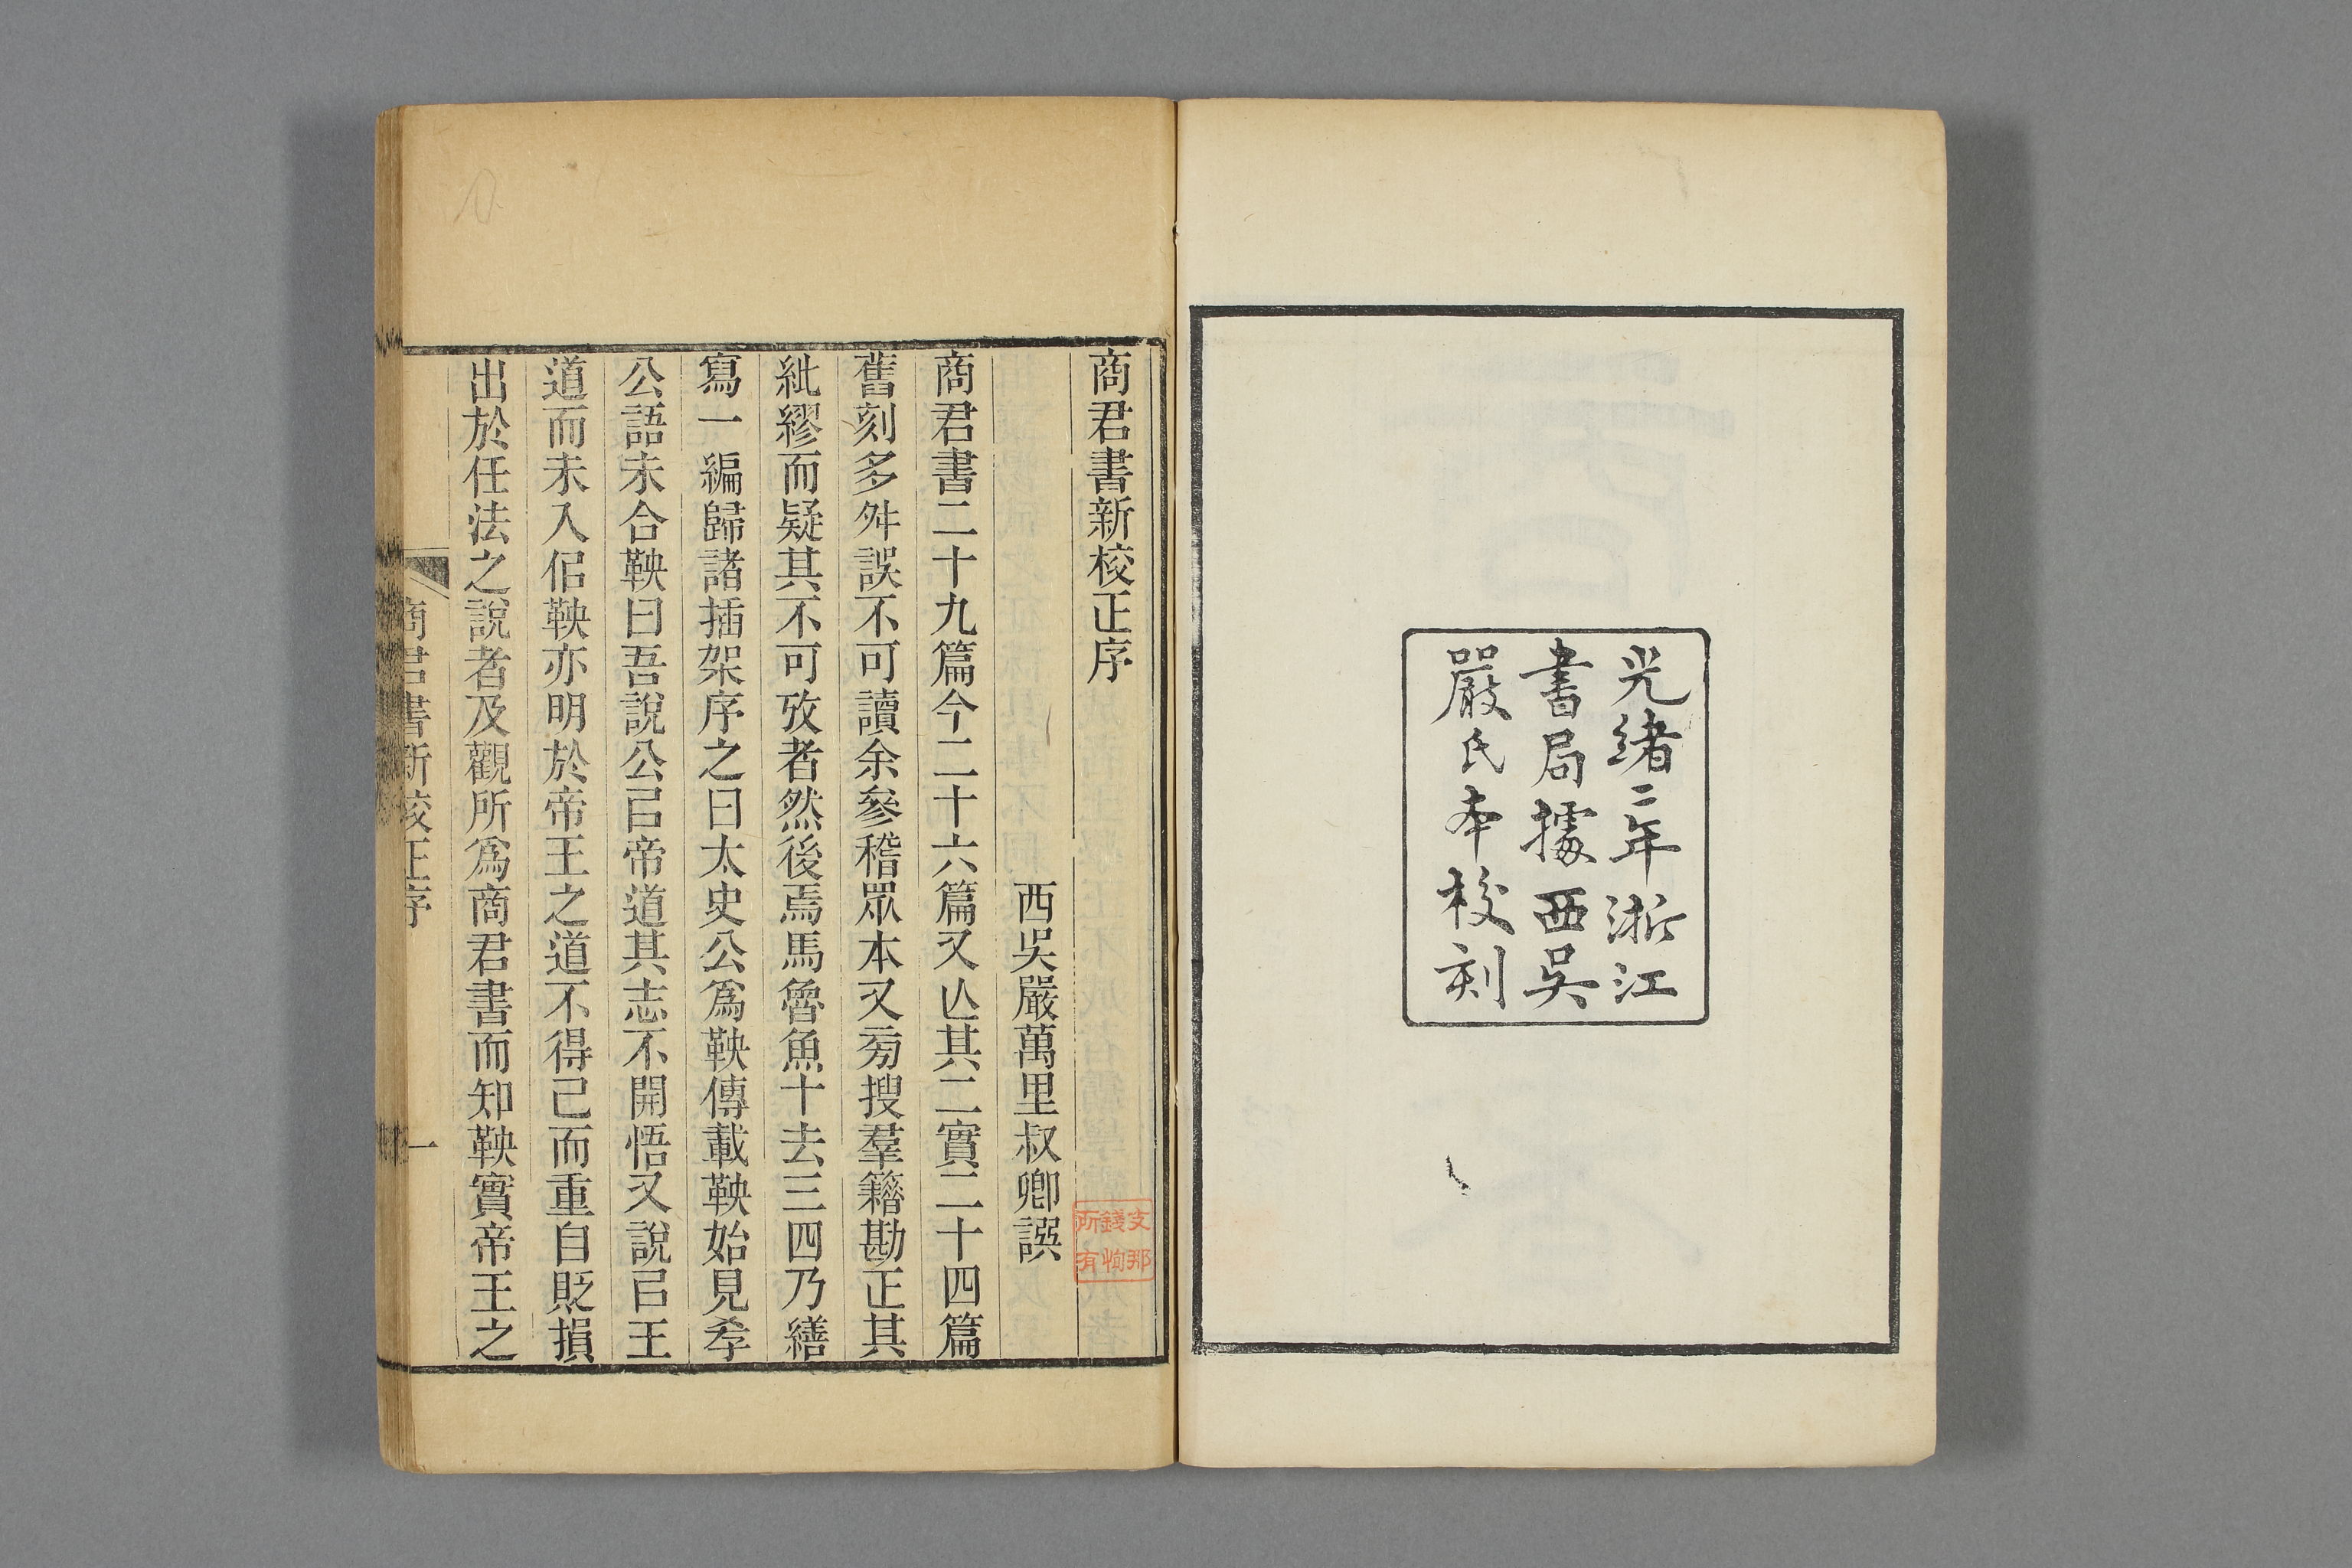 光緒二年浙江
書局據西吳
嚴氏本校刻
商君書新校正序
西吳嚴萬里叔卿譔
商君書二十九篇今二十六篇又亾其二實二十四篇
舊刻多舛誤不可讀余參稽眾本又㫄搜羣籍勘正其
紕繆而疑其不可攷者然後焉馬魯魚十去三四乃繕
寫一編歸諸插架序之曰太史公爲鞅傳載鞅始見孝
公語未合鞅曰吾說公㠯帝道其志不開悟又說㠯王
道而未入侶鞅亦明於帝王之道不得已而重自貶損
出於任法之說者及觀所爲商君書而知鞅實帝王之
商君書新校正序
一
支那
錢恂
所有